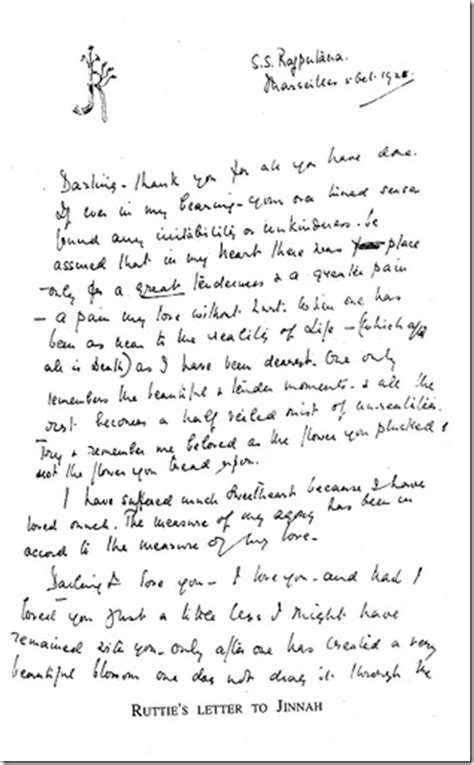 S.S. Rajputana.
Marseilles 5 Oct. 1928
Darling - thank you for all you have done.
If ever in my bearing - your over tuned senses
found any irritability or unkindness - be
assured that in my heart there was place
only for a great tenderness & a greater pain
- a pain my love without hurt. When one has
been as near to the reality of Life - (which after
all is Death) as I have been dearest. One only
remembers the beautiful & tender moments - & all the
rest becomes a half veiled mist of unrealities.
Try & remember me beloved as the flower you plucked &
not the flower you tread upon.
I have suffered much Sweetheart because I have
loved much. The measure of my agony has been in
accord to the measure of my love.
Darling I love you - I love you - and had I
loved you just a little less I might have
remained with you - only after one has created a very
beautiful blossom one does not drag it through the
RUTTIE'S LETTER TO JINNAH